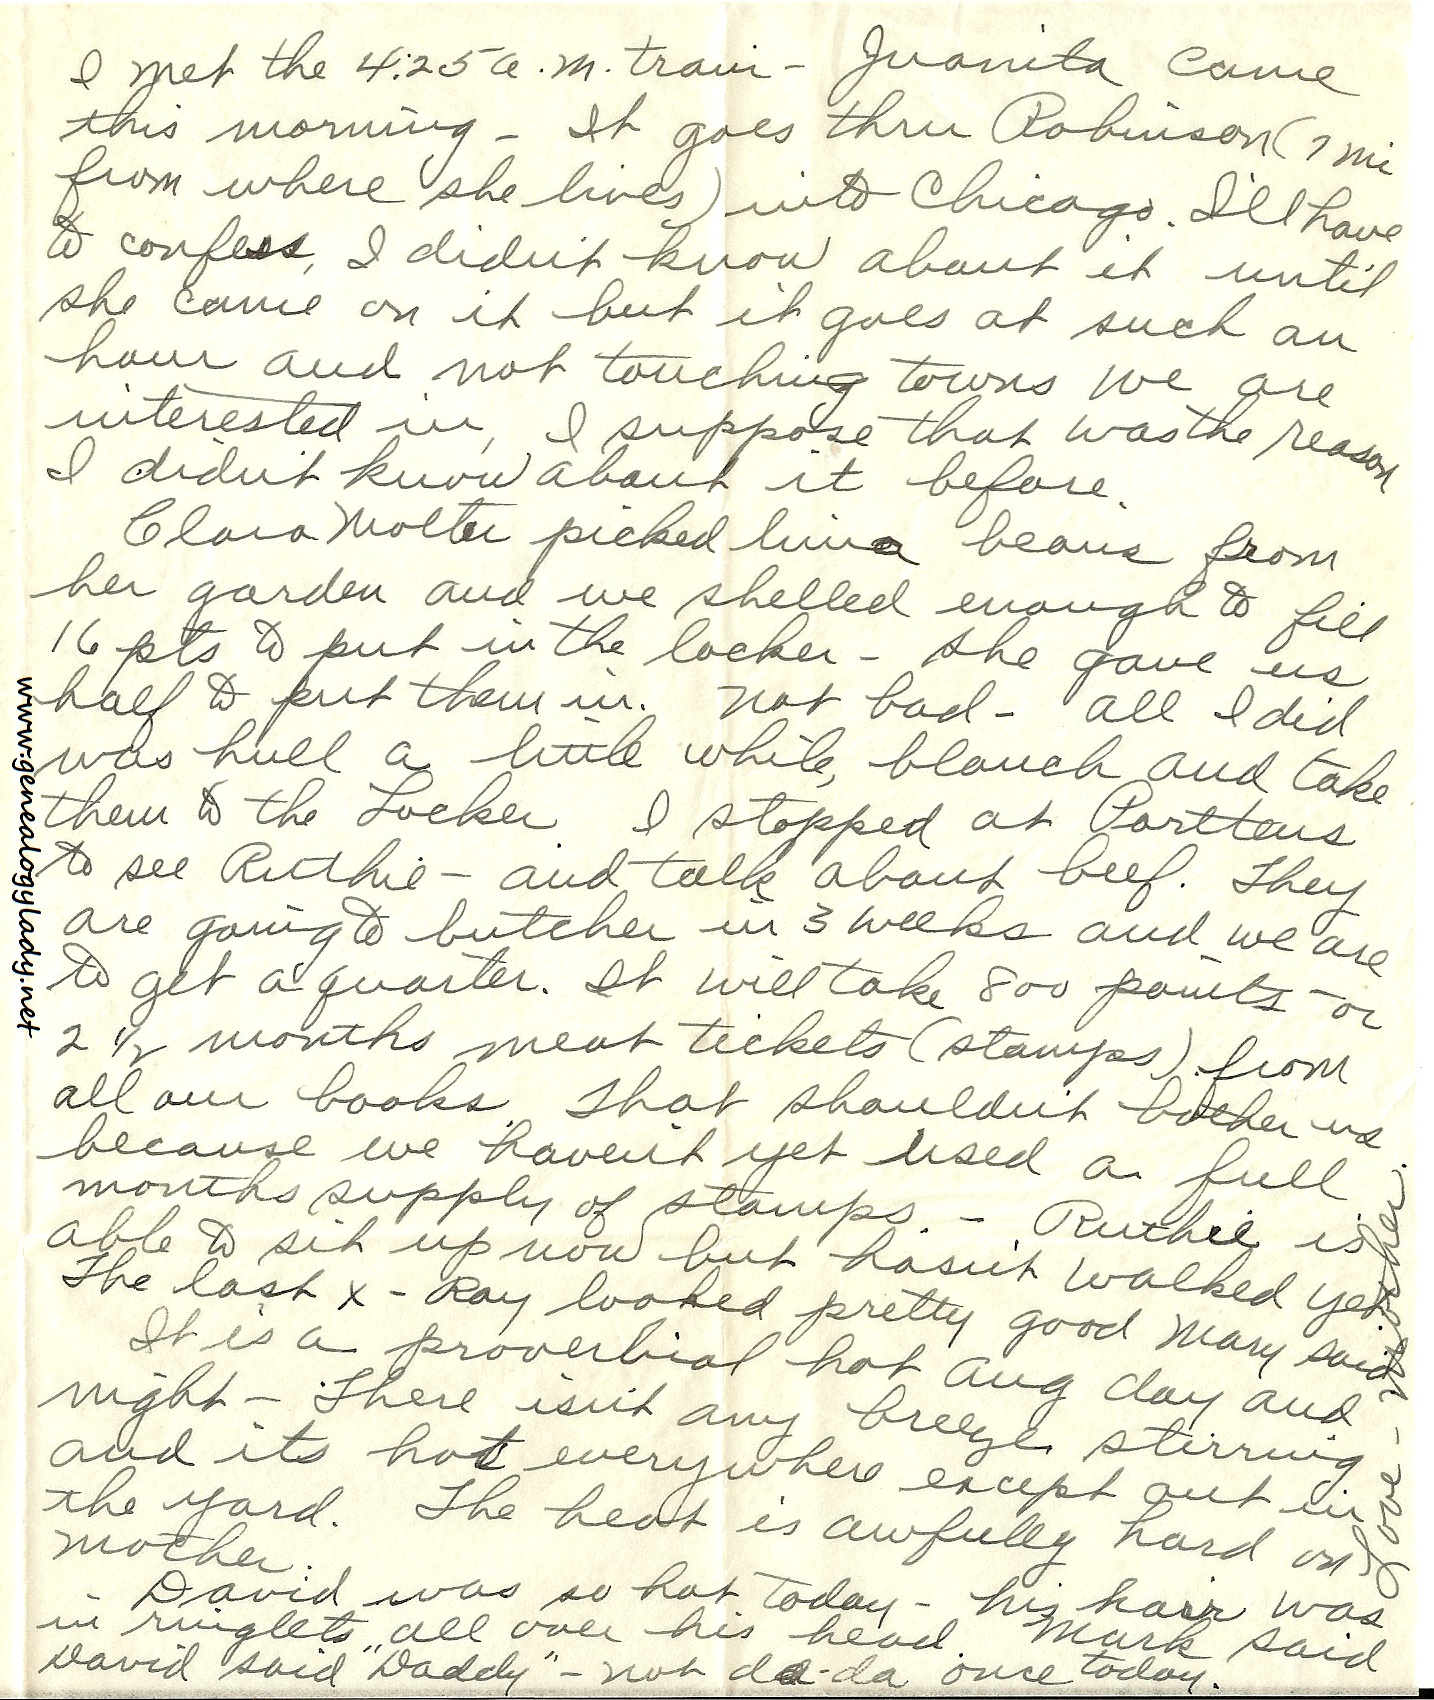 I met the 4:25 a.m. train - Juanita came
this morning - It goes thru Robinson (7 mi
from where she lives) into Chicago. I'll have
to confess, I didn't know about it until
she came on it but it goes at such an
hour and not touching towns we are
interested in, I suppose that was the reason
I didn't know about it before.
Clara Molter picked lima beans from
her garden and we shelled enough to fill
16 pts to put in the locker - she gave us
half to put them in. Not bad - all I did
was hull a little while, blanch and take
them to the Locker I stopped at Porttens
to see Ruthie - and talk about beef. They
are going to butcher in 3 weeks and we are
to get a quarter. It will take 800 points - or
2 1/2 months meat tickets (stamps) from
all our books. That shouldn't bother us
because we haven't yet used a full
months supply of stamps. - Ruthie is
able to sit up now but hasn't walked yet
The last x-Ray looked pretty good Mary said
It is a proverbial hot Aug day and
night - There isn't any breeze stirring
and its hot everywhere except out in
the yard. The heat is awfully hard on
mother.
David was so hot today - his hair was
in ringlets all over his head. Mark said
David said "Daddy" - not da-da once today.
Love - Mother.
www.genealogylady.net